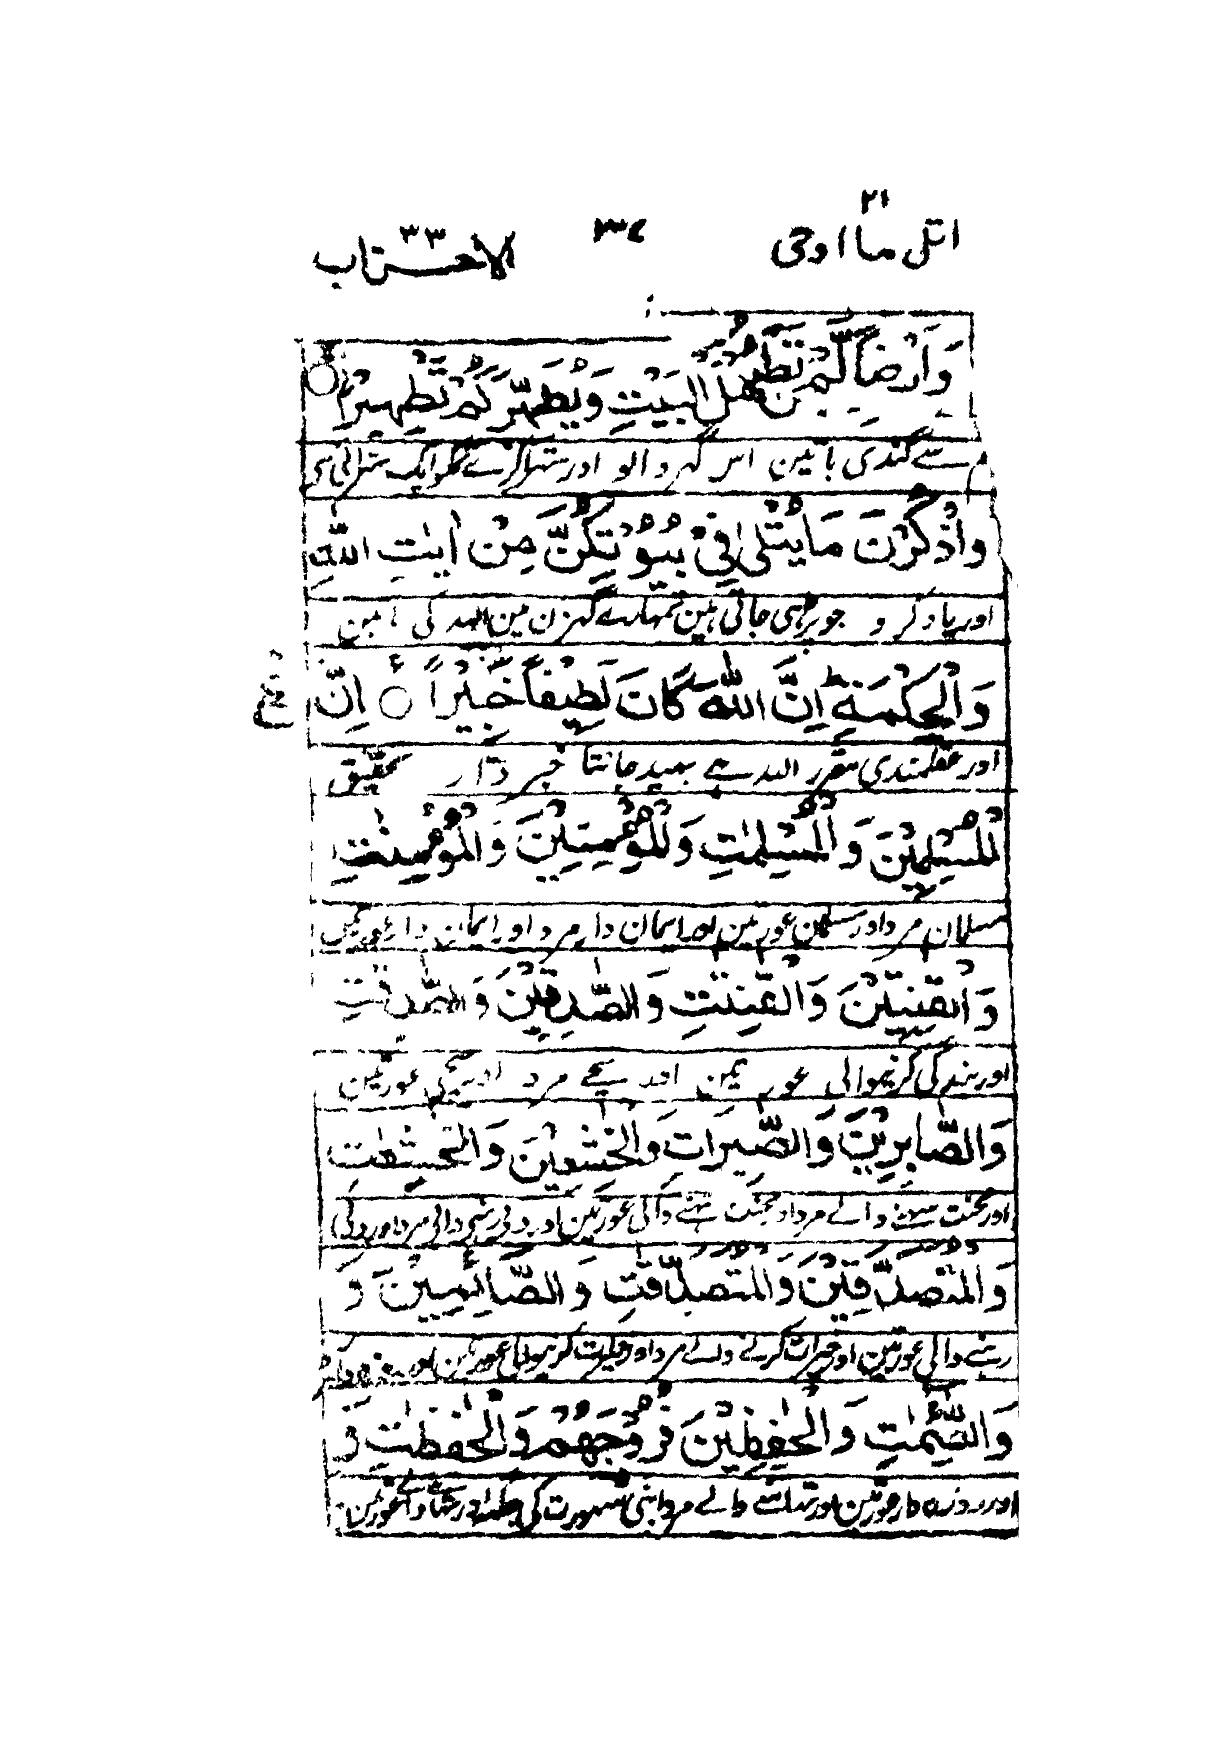 اتل ما اوحی ٢١
٣٤
الاحزاب ٣٣
اَهْلَ الْبَيْتِ وَيُطَهِّرَكُمْ تَطْهِيْرًا
سے گندی باتین اس گہر والو اور ستہرا کرے تمکو ایک ستہرائی سی
وَاذْكُرْنَ مَا يُتْلٰى فِيْ بُيُوْتِكُنَّ مِنْ اٰيٰتِ اللّٰهِ
اور یاد کرو جو پڑہی جاتی ہین تمہارے گہرن مین اللہ کی
وَالْحِكْمَةِ اِنَّ اللّٰهَ كَانَ لَطِيْفًا خَبِيْرًا اِنَّ
اور عقلمندی مقرر اللہ ہے بھید جانتا خبردار تحقیق
الْمُسْلِمِيْنَ وَالْمُسْلِمٰتِ وَالْمُؤْمِنِيْنَ وَالْمُؤْمِنٰتِ
مسلمان مرد اور مسلمان عورتین اور ایمان دار مرد اور ایمان دار عورتین
وَالْقٰنِتِيْنَ وَالْقٰنِتٰتِ وَالصّٰدِقِيْنَ وَالصّٰدِقٰتِ
اور بندگی کرنیوالی عورتین اور سچے مرد اور سچی عورتین
وَالصَّابِرِيْنَ وَالصّٰبِرَاتِ وَالْخٰشِعِيْنَ وَالْخٰشِعٰتِ
اور محنت سہنے والے مرد اور محنت سہنے والی عورتین اور دبی رہنی والی مرد اور دبی
وَالْمُتَصَدِّقِيْنَ وَالْمُتَصَدِّقٰتِ وَالصَّائِمِيْنَ وَ
رہنے والی عورتین اور خیرات کرنے والے مرد اور خیرات کرنیوالی عورتین اور روزہ دار
وَالصّٰٓئِمٰتِ وَالْحٰفِظِيْنَ فُرُوْجَهُمْ وَالْحٰفِظٰتِ وَ
اور روزہ دار عورتین اور تہامنے والے مرد اپنی شہوت کی جگہ اور تہامنے والی عورتین